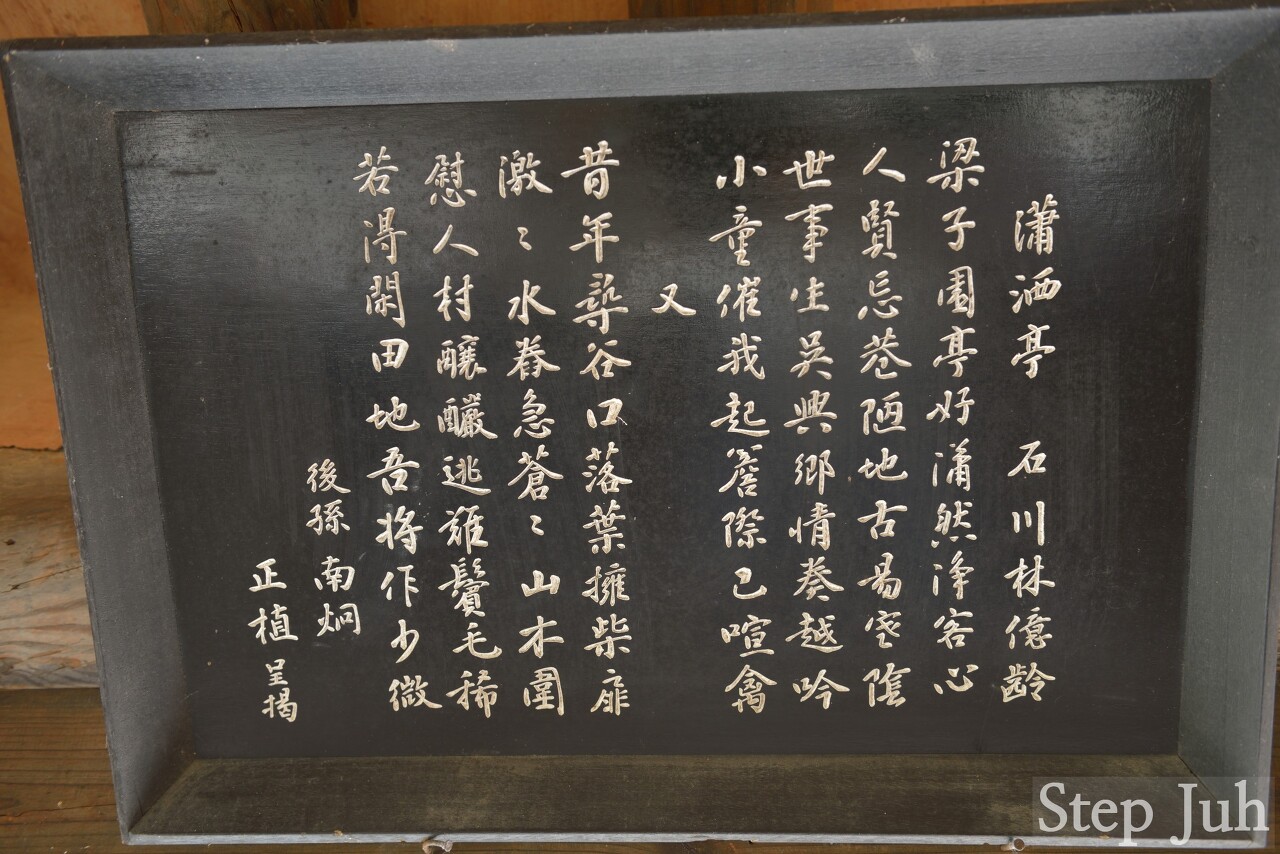 瀟洒亭 石川林億齡
梁子園亭好瀟然淨客心
人賢忘巷陋地古易密陰
世事生吳興鄉情奏越吟
小童催我起簷際已喧禽
又
昔年尋谷口落葉擁柴扉
激〻水舂急蒼〻山木圍
慰人村釀釅逃難鬢毛稀
若得閑田地吾將作少微
後孫 南炯
正植 呈揭
Step Juh